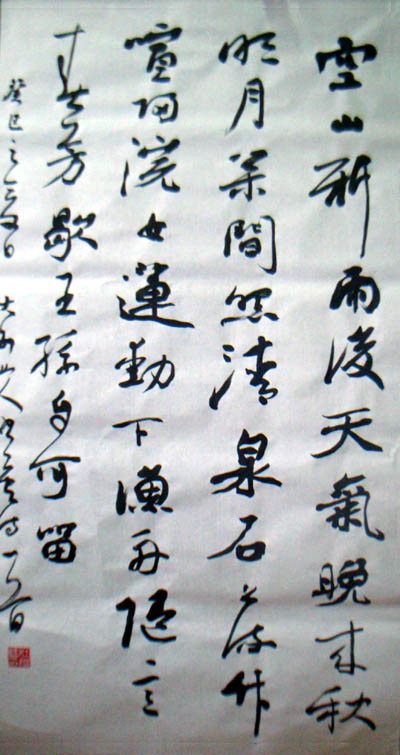 空山新雨後天氣晚来秋
明月松間照清泉石上流竹
喧归浣女蓮動下漁舟隨意
春芳歇王孫自可留
癸巳之 日 山人书 诗一首